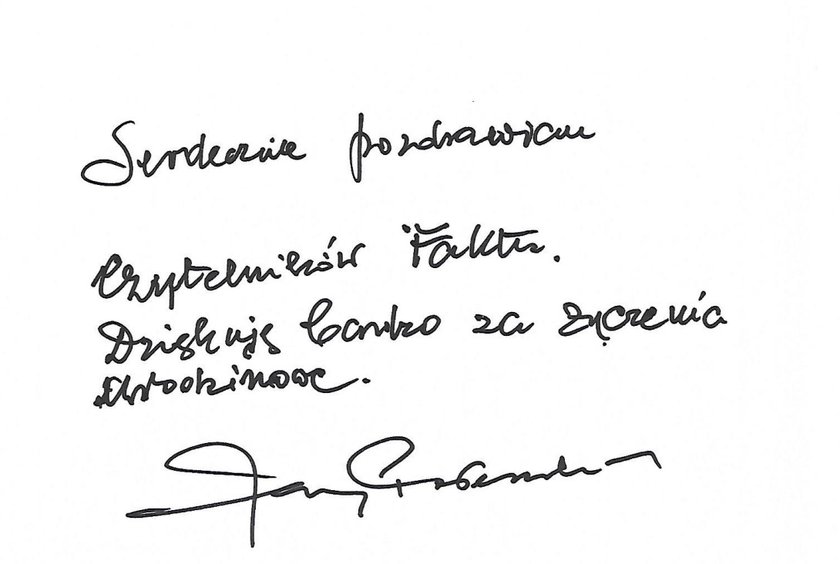 Serdecznie pozdrawiam
Czytelników Faktu.
Dziękuję bardzo za życzenia
urodzinowe.